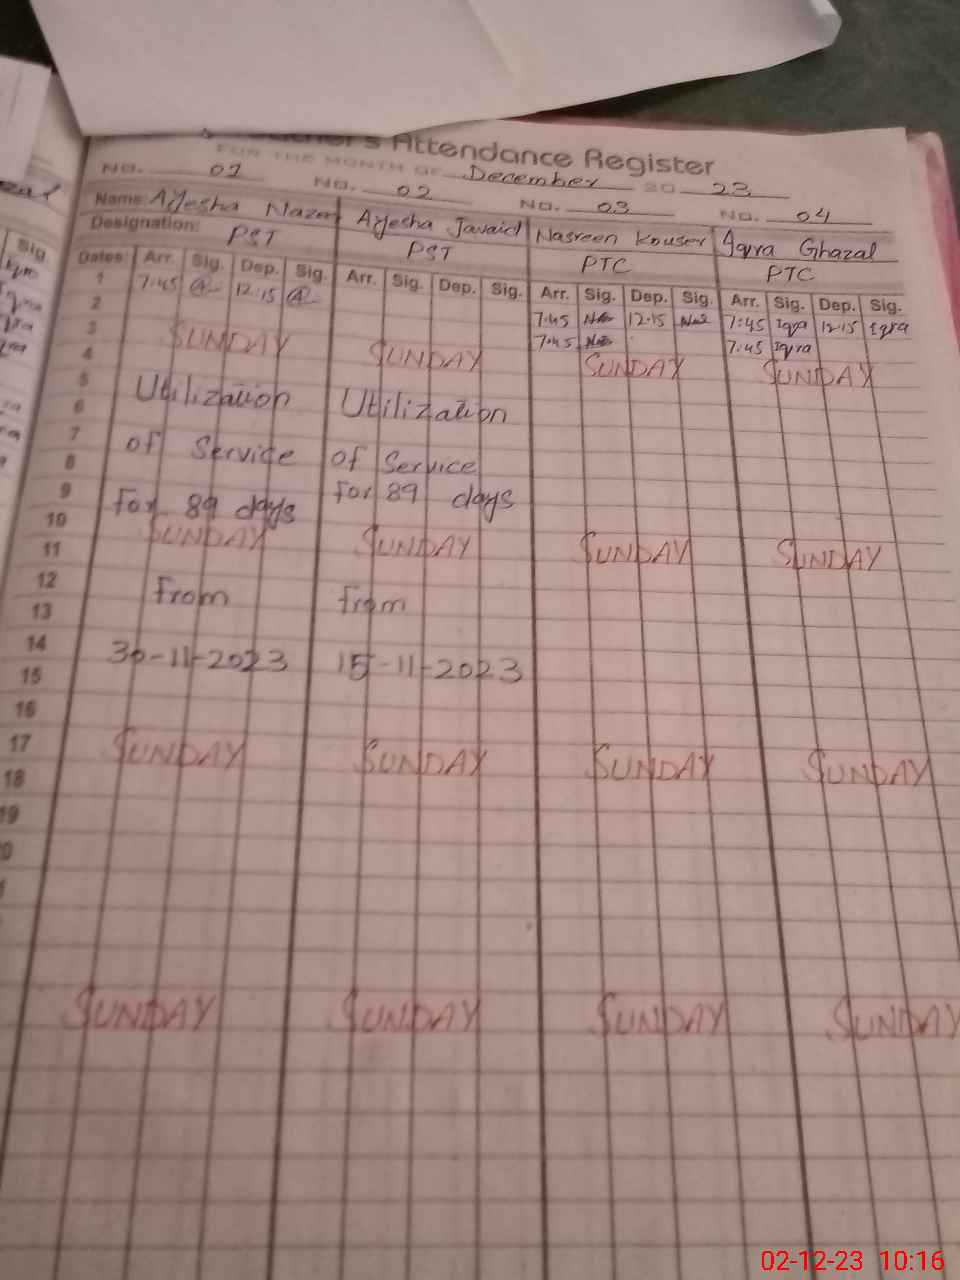 Teacher's Attendance Register
FOR THE MONTH OF December 20 23
NO. 01 NO. 02 NO. 03 NO. 04
Name: Ayesha Nazer Ayesha Javaid Nasreen Kouser Iqra Ghazal
Designation: PST PST PTC PTC
Dates: Arr. Sig. Dep. Sig. Arr. Sig. Dep. Sig. Arr. Sig. Dep. Sig. Arr. Sig. Dep. Sig.
1 7:45 12:15 7:45 12:15 7:45 Iqra 12:15 Iqra
2 7:45 7:45 Iqra
3 SUNDAY SUNDAY SUNDAY SUNDAY
4
5 Utilization Utilization
6
7 of Service of Service
8
9 for 89 days for 89 days
10 SUNDAY SUNDAY SUNDAY SUNDAY
11
12 from from
13
14 30-11-2023 15-11-2023
15
16
17 SUNDAY SUNDAY SUNDAY SUNDAY
18
19
SUNDAY SUNDAY SUNDAY SUNDAY
02-12-23 10:16